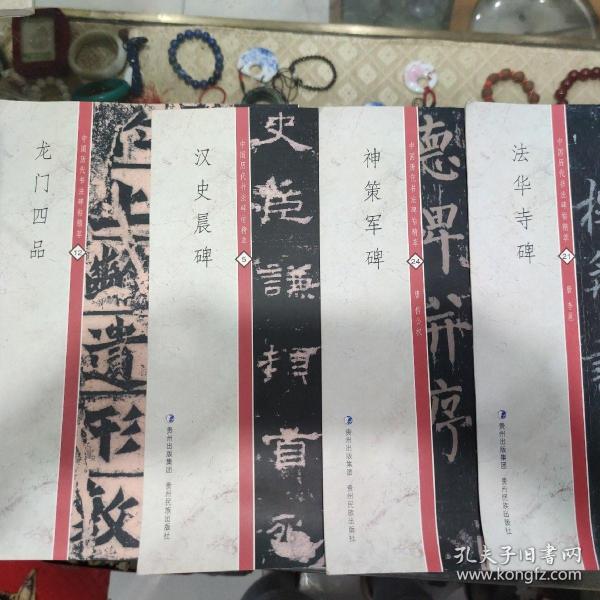 龙门四品
中国历代书法碑帖精萃
12
遗
形
敬
汉史晨碑
中国历代书法碑帖精萃
5
史
晨
谦
頓
首
死
贵州出版集团 贵州民族出版社
神策军碑
中国历代书法碑帖精萃
24
唐 柳公权
德
碑
并
序
贵州出版集团 贵州民族出版社
法华寺碑
中国历代书法碑帖精萃
21
唐 李邕
贵州出版集团 贵州民族出版社
孔夫子旧书网
www.kongfz.com